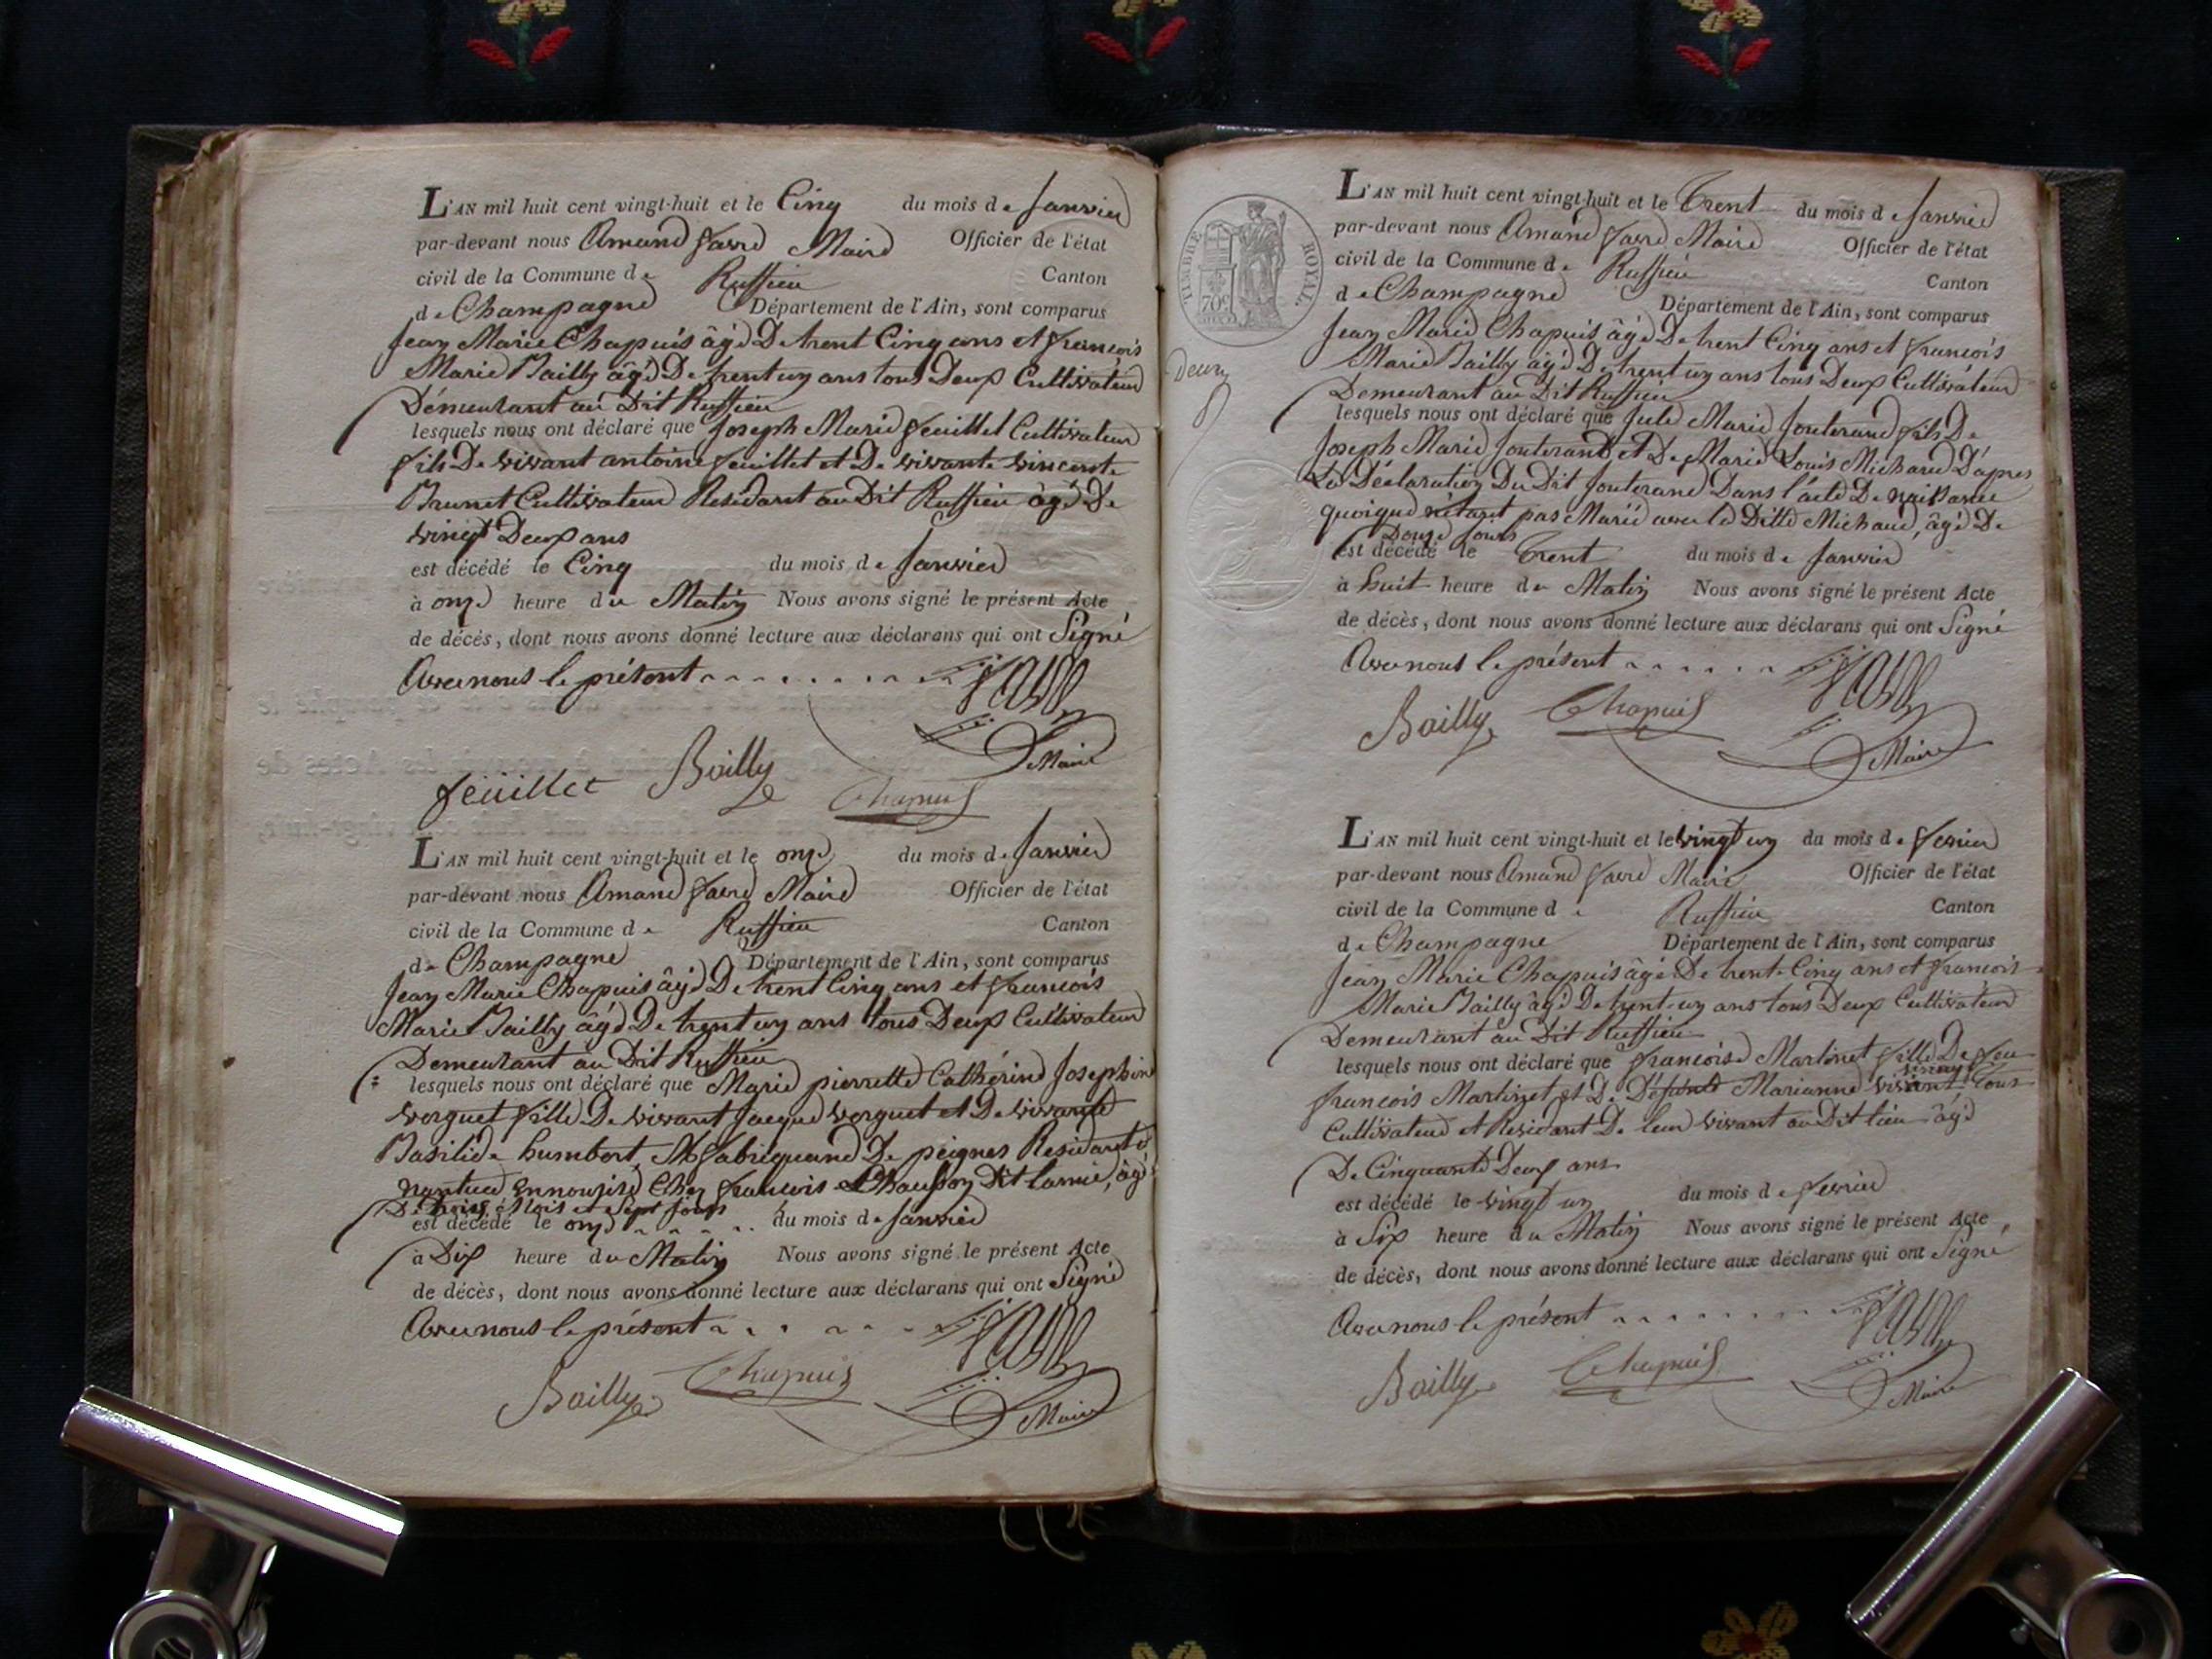 L'AN mil huit cent vingt-huit et le Cinq du mois de Janvier
par-devant nous Amand favre Maire Officier de l'état
civil de la Commune de Ruffieu Canton
de Champagne Département de l'Ain, sont comparus
Jean Marie Chapuis âgé De trent Cinq ans et francois
Marie Bailly âgé De trent un ans tous Deux Cultivateur
Démeurant au Dit Ruffieu
lesquels nous ont déclaré que Joseph Marie feuillet Cultivateur
fils De vivant antoine feuillet et De vivante vincente
Brunet Cultivateur Residant au Dit Ruffieu âgé De
vingt Deux ans
est décédé le Cinq du mois de Janvier
à onze heure du Matin Nous avons signé le présent Acte
de décès, dont nous avons donné lecture aux déclarans qui ont Signé
Avec nous le présent
favre
Maire
feüillet Bailly Chapuis
L'AN mil huit cent vingt-huit et le onze du mois de Janvier
par-devant nous Amand favre Maire Officier de l'état
civil de la Commune de Ruffieu Canton
de Champagne Département de l'Ain, sont comparus
Jean Marie Chapuis âgé De trent Cinq ans et francois
Marie Bailly âgé De trent un ans tous Deux Cultivateur
Demeurant au Dit Ruffieu
lesquels nous ont déclaré que Marie pierrette Cathérine Josephine
verguet fille De vivant Jacque verguet et De vivante
Basilide humbert fabriquand De peignes Residant à
nantua en nourise Chez francois Chausson Dit lamie, âgé
De trois Mois et Sept Jours
est décédé le onze du mois de Janvier
à Dix heure du Matin Nous avons signé le présent Acte
de décès, dont nous avons donné lecture aux déclarans qui ont Signé
Avec nous le présent
favre
Bailly Chapuis Maire
TIMBRE ROYAL
70c
Deux
L'AN mil huit cent vingt-huit et le Trent du mois de Janvier
par-devant nous Amand favre Maire Officier de l'état
civil de la Commune de Ruffieu Canton
de Champagne Département de l'Ain, sont comparus
Jean Marie Chapuis âgé De trent Cinq ans et francois
Marie Bailly âgé De trent un ans tous Deux Cultivateur
Demeurant au Dit Ruffieu
lesquels nous ont déclaré que Jule Marie Jouterand fils De
Joseph Marie Jouterand et De Marie Louis Michaud D'apres
La Déclaration Du Dit Jouterand Dans l'acte De naissance
quoique n'étant pas Marié avec la Ditte Michaud, âgé De
Douze Jours
est décédé le Trent du mois de Janvier
à huit heure du Matin Nous avons signé le présent Acte
de décès, dont nous avons donné lecture aux déclarans qui ont Signé
Avec nous le présent
favre
Bailly Chapuis Maire
L'AN mil huit cent vingt-huit et le vingt un du mois de fevrier
par-devant nous Amand favre Maire Officier de l'état
civil de la Commune de Ruffieu Canton
de Champagne Département de l'Ain, sont comparus
Jean Marie Chapuis âgé De trent-Cinq ans et francois
Marie Bailly âgé De trent-un ans tous Deux Cultivateur
Demeurant au Dit Ruffieu
lesquels nous ont déclaré que francoise Martinet fille De feu
francois Martinet et De Défunte Marianne tous
Cultivateur et Residant De leur vivant au Dit lieu âgé
De Cinquante Deux ans
est décédé le vingt un du mois de fevrier
à Six heure du Matin Nous avons signé le présent Acte
de décès, dont nous avons donné lecture aux déclarans qui ont Signé
Avec nous le présent
favre
Bailly Chapuis Maire